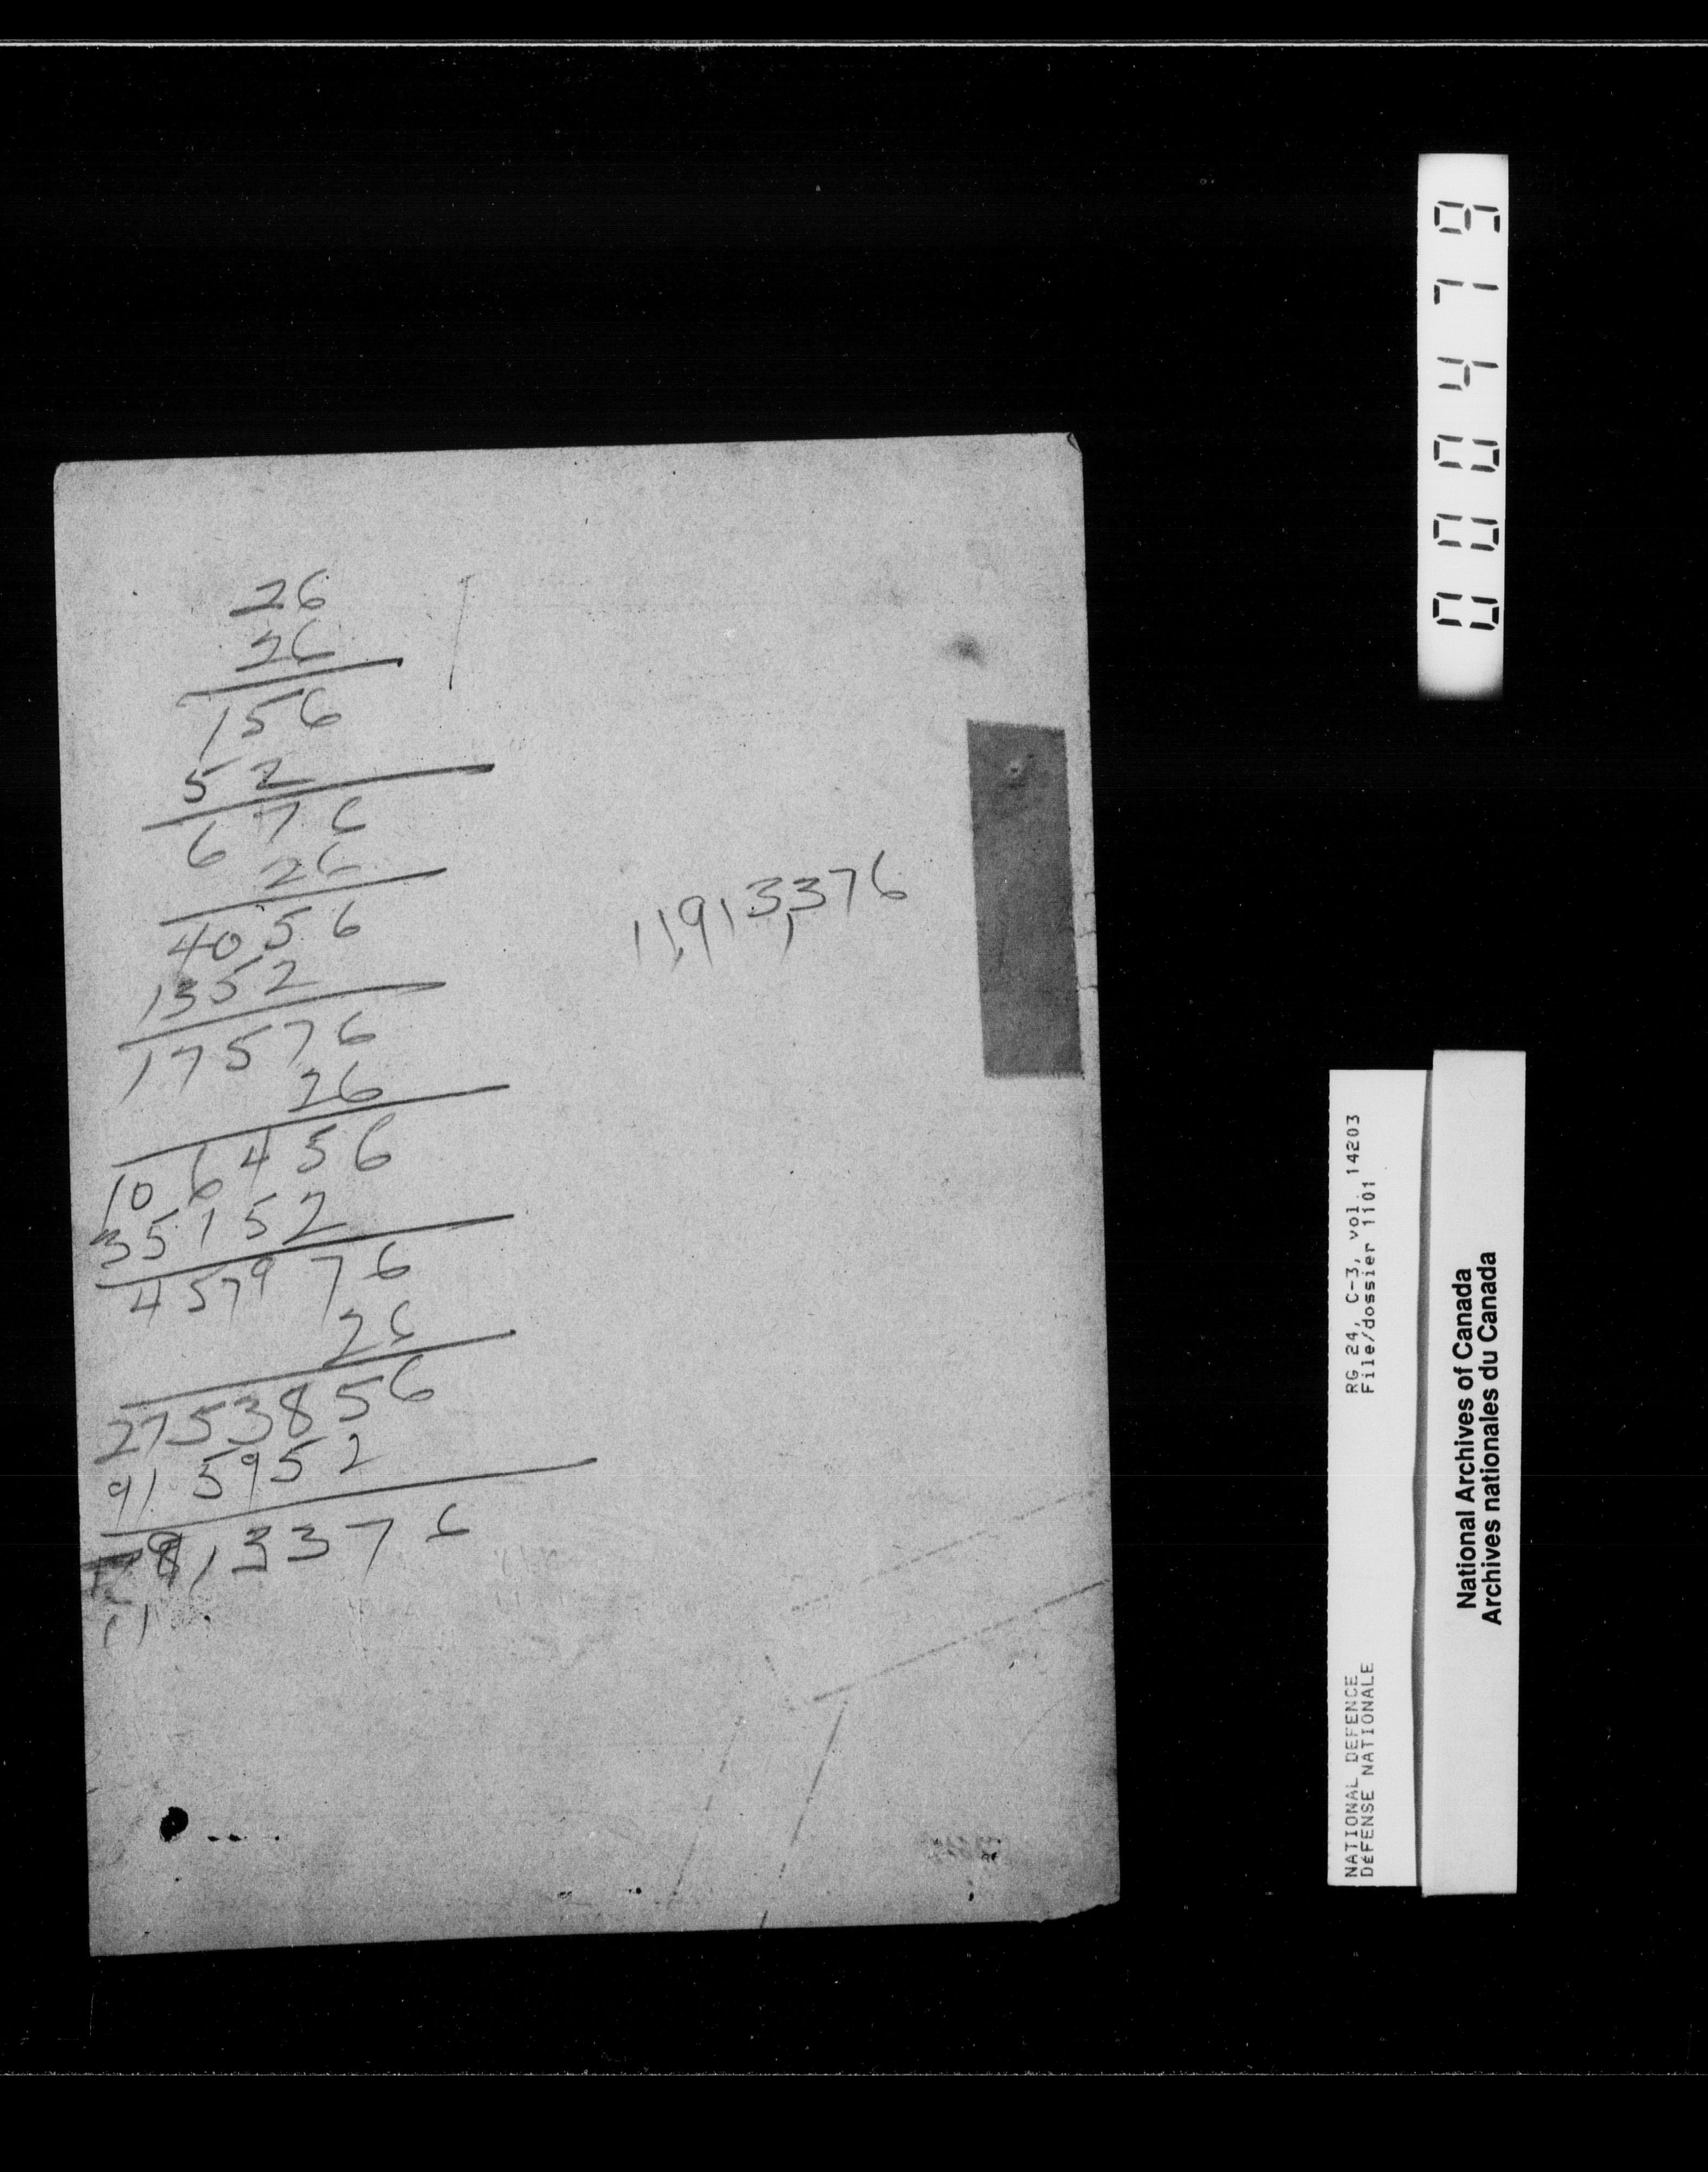 26
26
156
52
676
26
4056
1352
17576
26
106456
35152
457976
26
2753856
915952
913376
11
11,913,376
000479
RG 24, C-3, vol. 14203
File/dossier 1101
NATIONAL DEFENCE
DÉFENSE NATIONALE
National Archives of Canada
Archives nationales du Canada